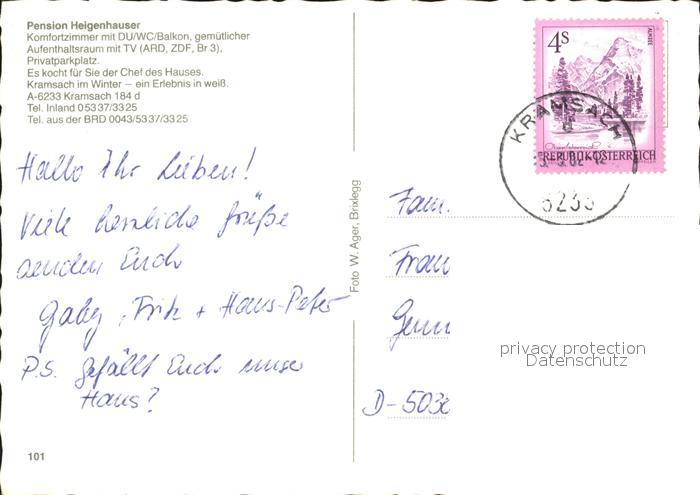 Pension Heigenhauser
Komfortzimmer mit DU/WC/Balkon, gemütlicher
Aufenthaltsraum mit TV (ARD, ZDF, Br 3),
Privatparkplatz.
Es kocht für Sie der Chef des Hauses.
Kramsach im Winter – ein Erlebnis in weiß.
A-6233 Kramsach 184 d
Tel. Inland 05337/3325
Tel. aus der BRD 0043/5337/3325
Hallo Ihr Lieben!
Viele herzliche Grüße
senden Euch
Gaby, Fritz + Hans-Peter
P.S. Gefällt Euch unser
Haus?
101
Foto W. Ager, Brixlegg
4S
ALMSEE
REPUBLIK ÖSTERREICH
KRAMSACH
6233
Fam.
D-503
privacy protection
Datenschutz